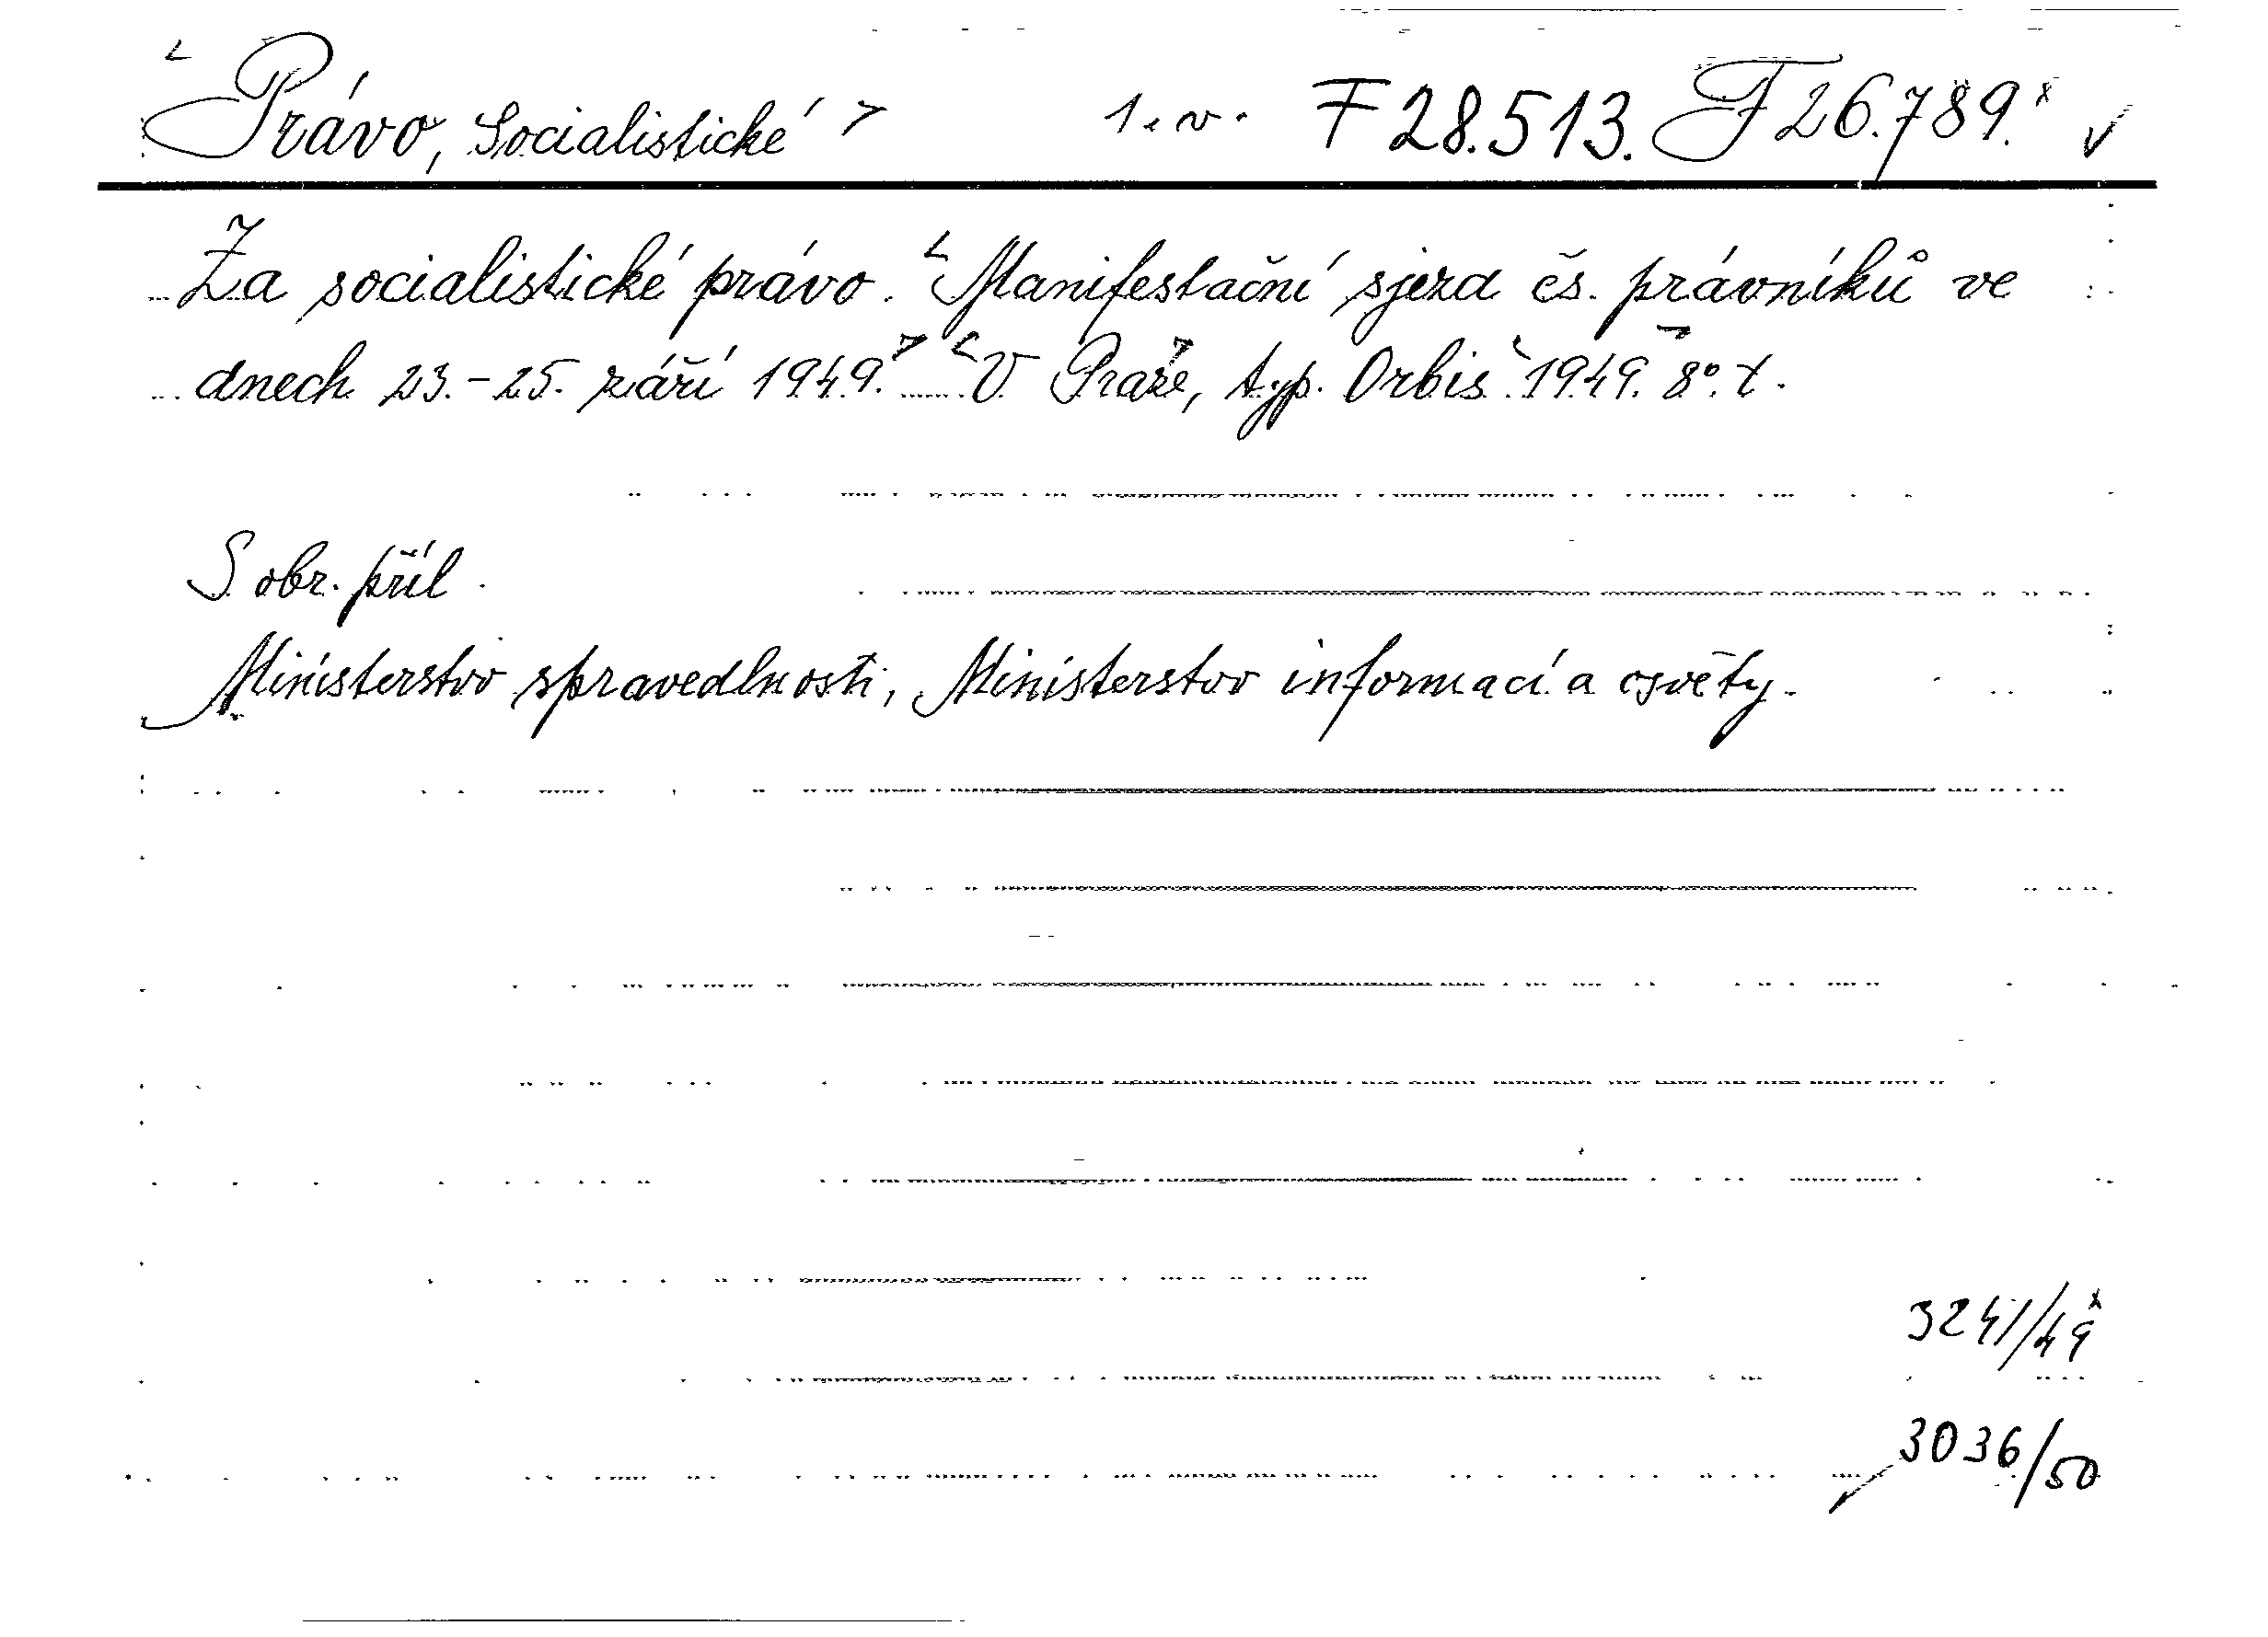 < Právo, Socialistické > 1. v. F 28.513. F 26.789.x ✓
Za socialistické právo. < Manifestační sjezd čs. právníků ve
dnech 23.-25. září 1949. > < V Praze, typ. Orbis 1949. 8°. t.
S obr. příl.
Ministerstvo spravedlnosti, Ministerstvo informací a osvěty.
3241/49 x
✓ 3036/50